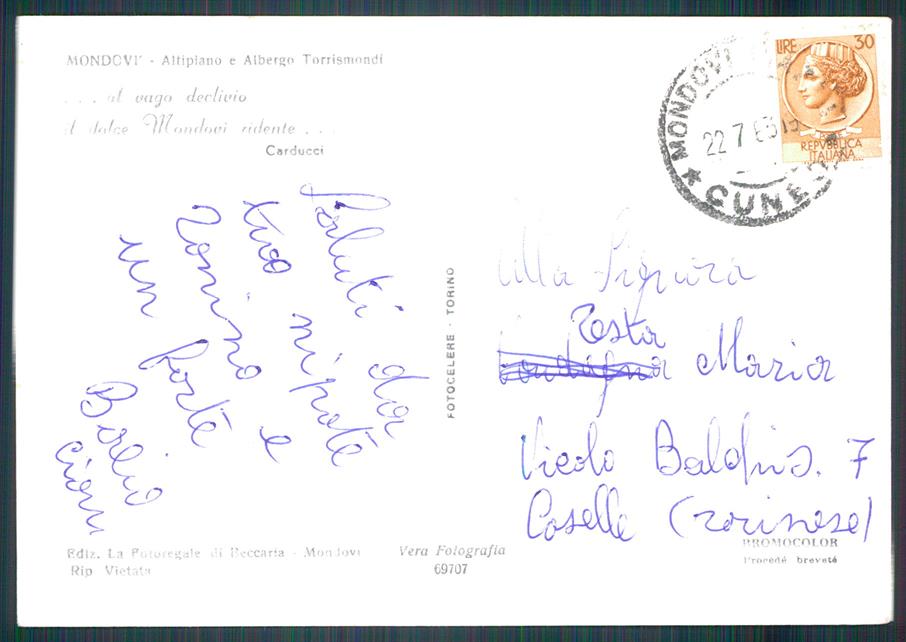 MONDOVI' - Altipiano e Albergo Torrismondi
. . . al vago declivio
il dolce Mondovì ridente . . .
Carducci
MONDOVI
22 7 63 15
★ CUNEO
LIRE 30
REPVBBLICA
ITALIANA
Saluti da
tuo nipote
Tonino e
un forte
Bacio
ciau
FOTOCELERE - TORINO
Alla Signora
Testa
Maria
Vicolo Baldis. 7
Caselle (Torinese)
Ediz. La Fotoregale di Beccaria - Mondovì
Rip Vietata
Vera Fotografia
69707
PROMOCOLOR
Procédé breveté